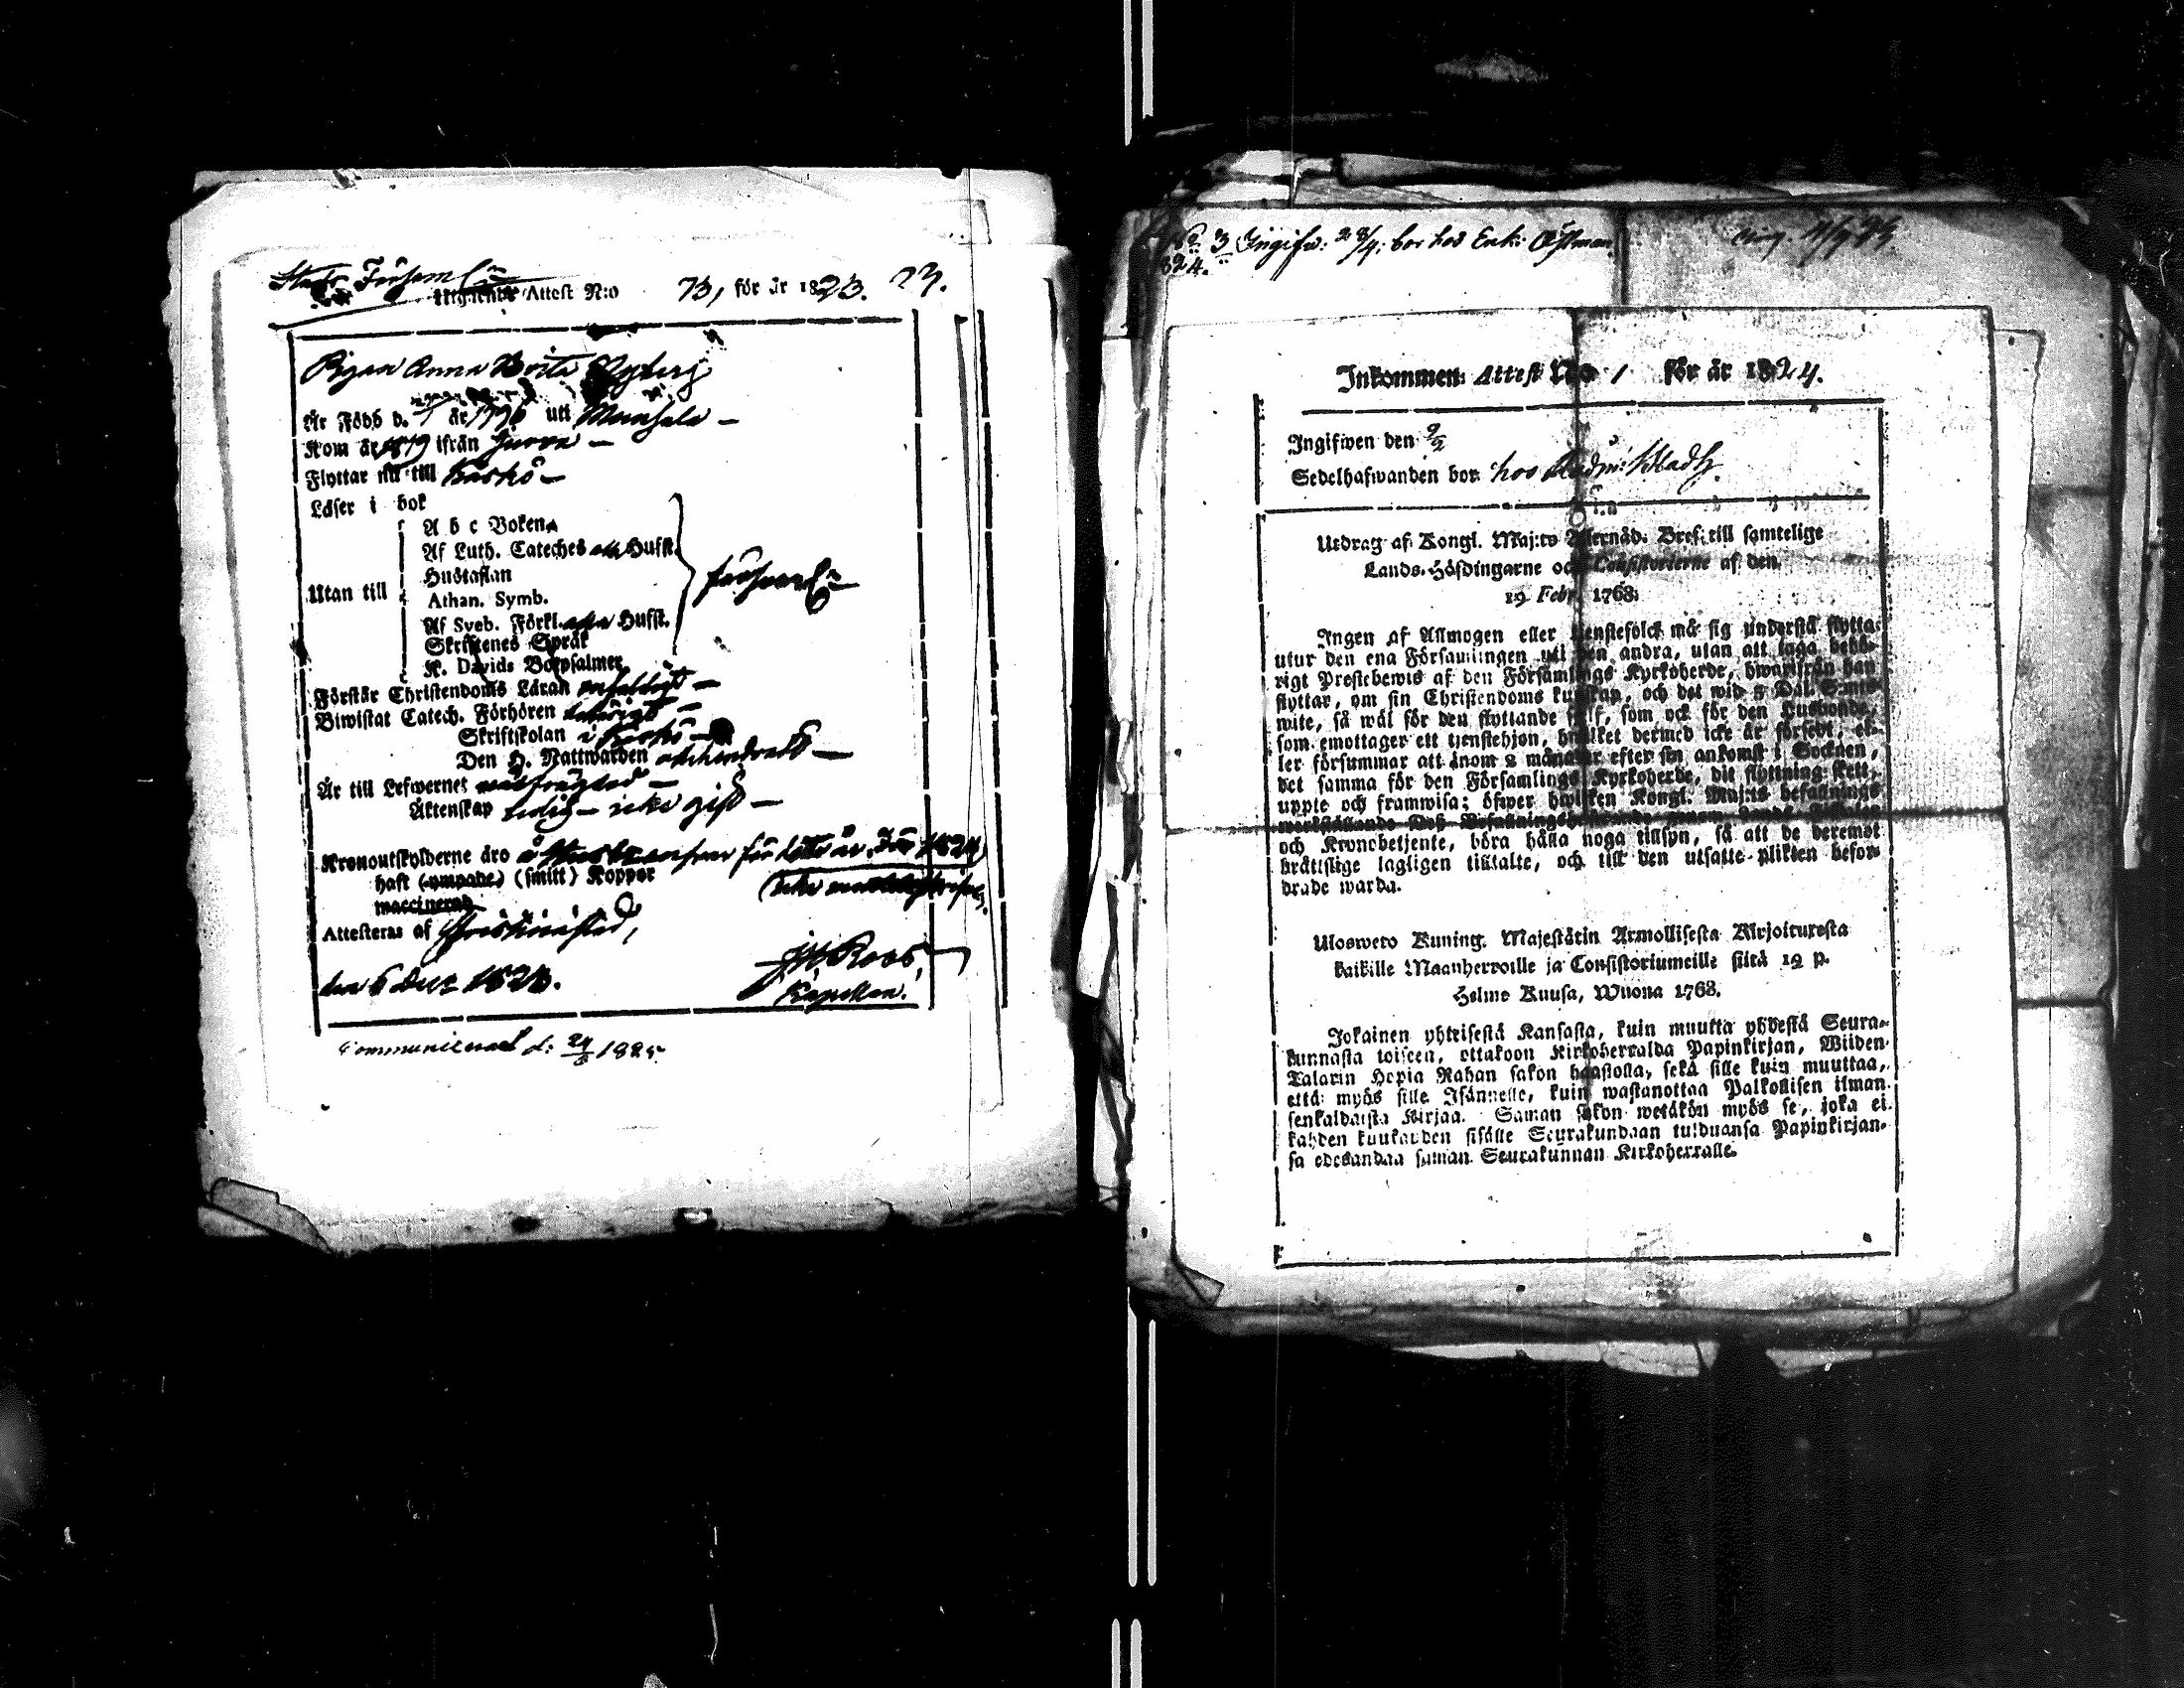 Stads Församl:
Utgifwen Attest N:o 73, för år 1823. 23.
Pigan Anna Brita Nyberg
Är Född d. år 1796 uti Munsala –
Kom år 1819 ifrån Jurva –
Flyttar nu till Kaskö –
Läser i bok
A b c Boken
Af Luth. Cateches Hufst.
Hustaflan
Utan till
Athan. Symb.
Af Sveb. Förkl. Hufst.
Skriftenes Språk
K. Davids Botpsalmer
försvarl:
Förstår Christendoms Läran enfaldigt –
Biwistat Catech. Förhören
Skriftskolan i Kaskö –
Den H. Nattwarden
Är till Lefwernet
Äktenskap ledig – icke gift –
Kronoutskylderne äro för detta år. 1824
haft (ympade) (smitt) Koppor
vaccinerad
Attesteras af Christinæstad,
den 6 Dec: 1823. J Roos,
Kapellan.
Communicerat d: 24/5 1825.
N:o 3 Ingifw: 28/4; bor hos Enk: Östman
824.
Inkommen Attest No 1 för år 1824.
Ingifwen den 9/2
Sedelhafwanden bor hos Rådm: Bladh
Utdrag af Kongl. Maj:ts Allernåd. Bref till samtelige
Lands-Höfdingarne och Consistorierne af den
19 Febr. 1768.
Ingen af Allmogen eller tjenstefolck må sig understå flytta
utur den ena Församlingen uti den andra, utan att taga behö-
rigt Prestebewis af den Församlings Kyrkoherde, hwarifrån han
flyttar, om sin Christendoms kunskap, och det wid 5 Dal. S:mts
wite, så wäl för den flyttande self, som ock för den Husbonde,
som emottager ett tjenstehjon, hwilket dermed icke är försedt, el-
ler försummar att inom 2 månader efter sin ankomst i Socknen,
det samma för den Församlings Kyrkoherde, dit flyttning skett,
uppte och framwisa; öfwer hwilken Kongl. Maj:ts befallnings
och Kronobetjente, böra hålla noga tillsyn, så att de deremot
bråttslige lagligen tiltalte, och till den utsatte plikten befor-
drade warda.
Ulosweto Kuning. Majestätin Armollisesta Kirjoituxesta
kaikille Maanherroille ja Consistoriumeille siitä 19 p.
Helme Kuusa, Wuona 1768.
Jokainen yhteisestä Kansasta, kuin muutta yhdestä Seura-
kunnasta toiseen, ottakoon Kirkoherralda Papinkirjan, Wiiden
Talarin Hopia Rahan sakon haastolla, sekä sille kuin muuttaa,
että myös sille Isännelle, kuin wastanottaa Palkollisen ilman
senkaldaista Kirjaa. Saman sakon wetäkön myös se, joka ei
kahden kuukauden sisälle Seurakundaan tulduansa Papinkirjan-
sa edesandaa saman Seurakunnan Kirkoherralle.